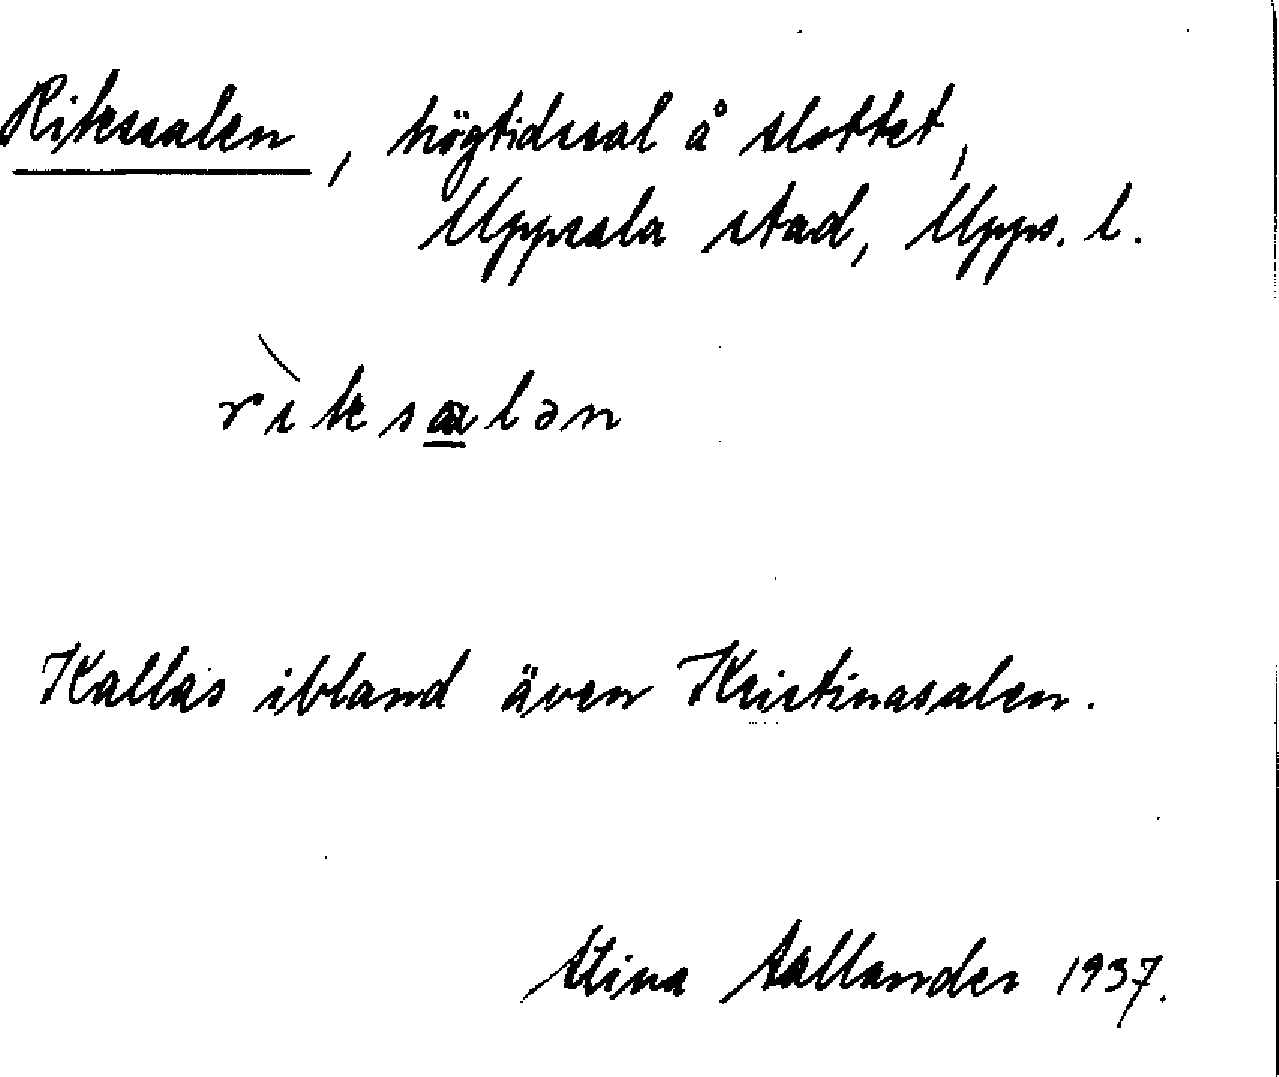 Rikssalen, högtidssal å slottet,
Uppsala stad, Upps. l.
rìksalən
Kallas ibland även Kristinasalen.
Stina Sallander 1937.